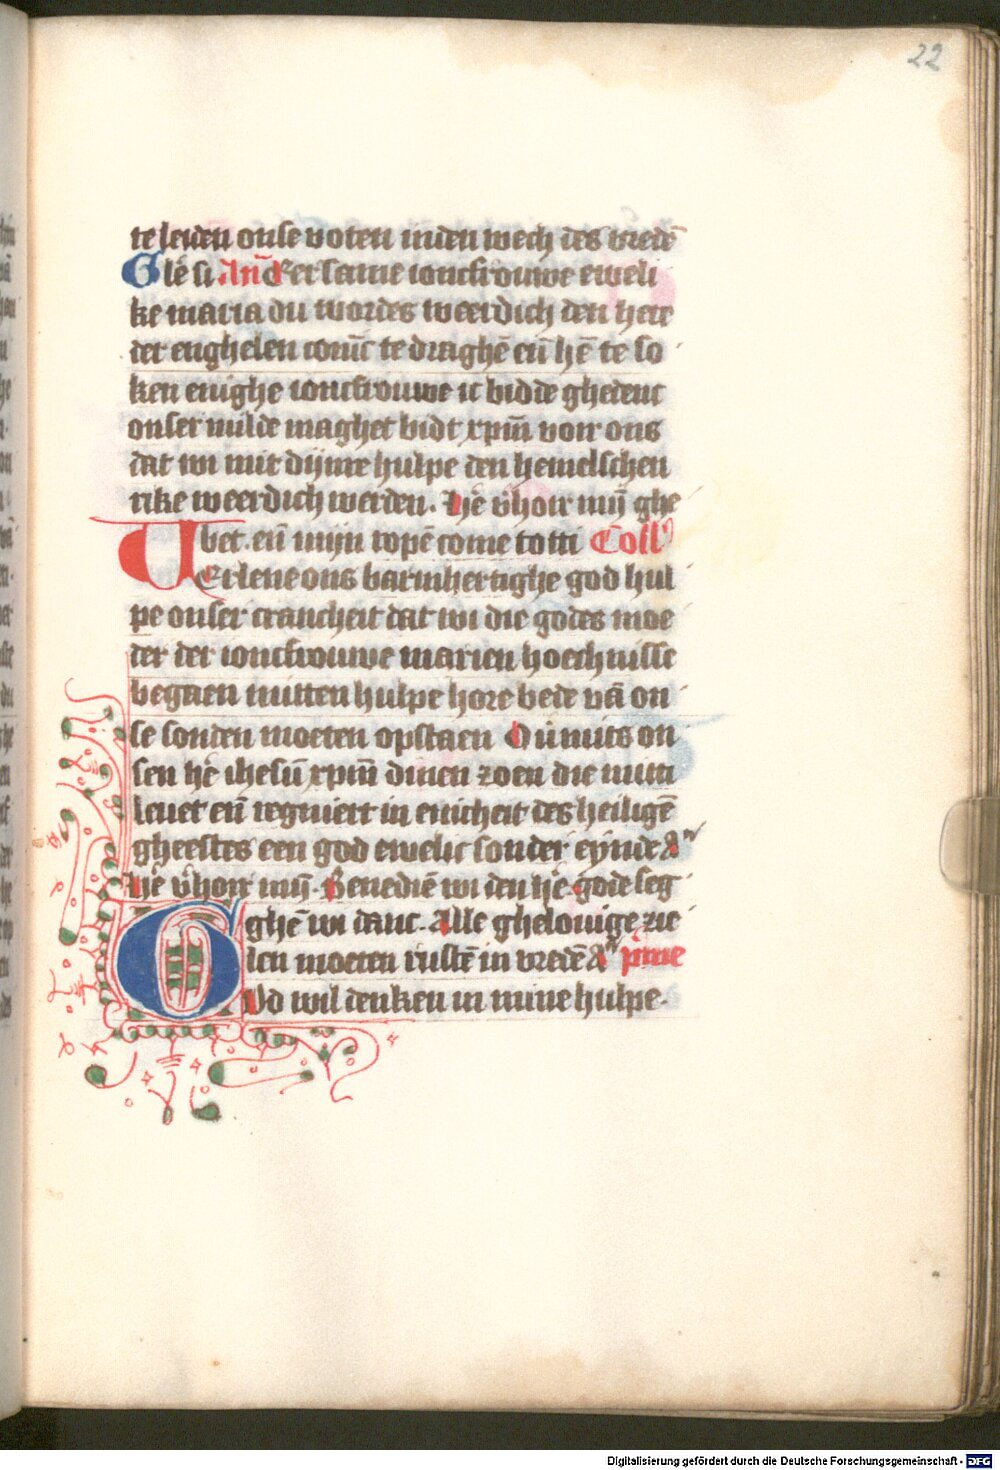 22
te leiden onse voten in den wech des vredē
Glē si Añ Eersame ioncfrouwe eweli
ke maria du wordes weerdich den here
der enghelen coninc te draghē eñ hē te so
ken enighe ioncfrouwe ic bidde ghedenc
onser milde maghet bidt xpm̄ voir ons
dat wi mit dijnre hulpe den hemelschen
rike weerdich werden. Hē v̄hoir mijn ghe
bet. eñ mijn ropē come totti Coll'
Verlene ons barmhertighe god hul
pe onser crancheit dat wi die godes moe
der der ioncfrouwe marien hoechnisse
begaen mitten hulpe hore bede vā on
se sonden moeten opstaen Ouermits on
sen hē ihesū xpm̄ dinen zoen die mitti
leuet eñ regniert in enicheit des heiligē
gheestes een god ewelic sonder eynde A
Hē v̄hoir mijn. Benediē wi den hē gode seg
ghē wi danc. Alle ghelouige zie
len moeten rustē in vredē A prime
God wil denken in mine hulpe.
Digitalisierung gefördert durch die Deutsche Forschungsgemeinschaft - DFG